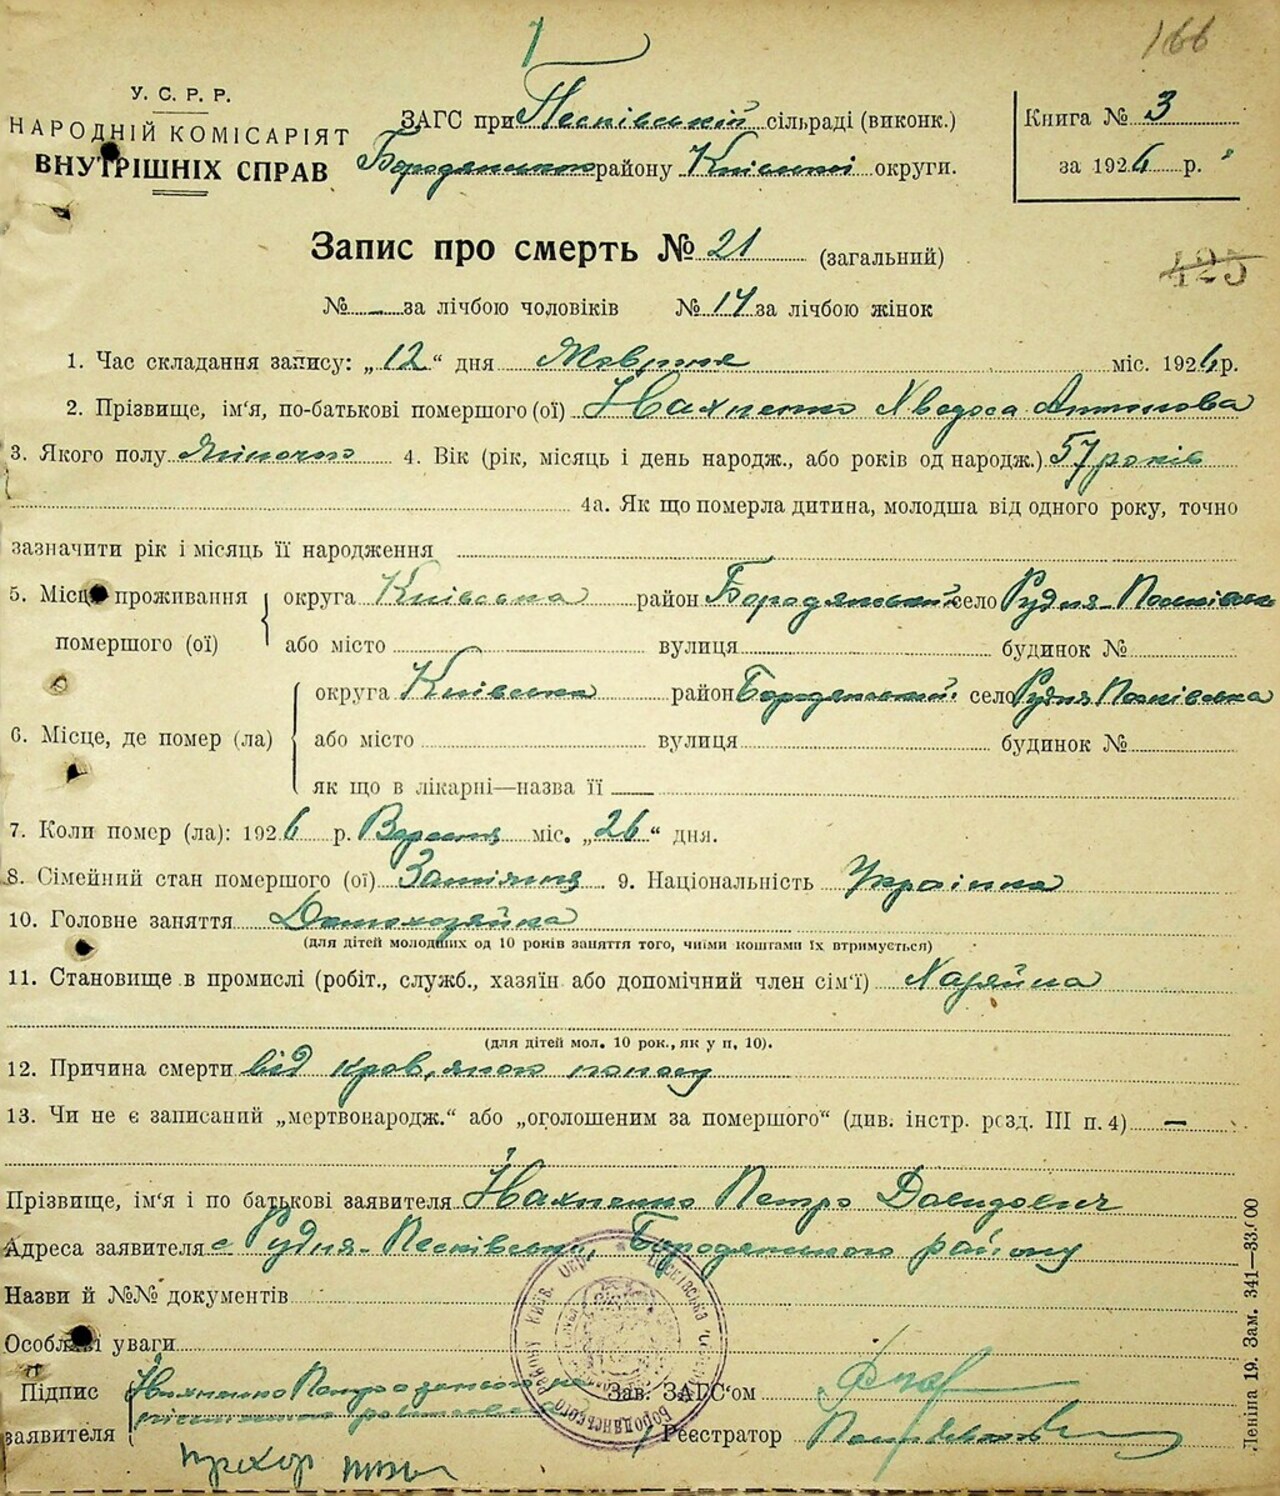 166
У. С. Р. Р.
НАРОДНІЙ КОМІСАРІЯТ
ВНУТРІШНІХ СПРАВ
ЗАГС при Песківській сільраді (виконк.)
Бородянського району Київської округи.
Книга № 3
за 1926 р.
Запис про смерть № 21 (загальний)
425
№ - за лічбою чоловіків № 14 за лічбою жінок
1. Час складання запису: „12“ дня Жовтня міс. 1926 р.
2. Прізвище, ім‘я, по-батькові помершого (ої) Нахпенко Хведоса Антонова
3. Якого полу Жіночого 4. Вік (рік, місяць і день народж., або років од народж.) 57 років
4а. Як що померла дитина, молодша від одного року, точно
зазначити рік і місяць її народження
5. Місце проживання помершого (ої) округа Київська район Бородянський село Рудня-Песківська
або місто вулиця будинок №
6. Місце, де помер (ла) округа Київська район Бородянський село Рудня Песківська
або місто вулиця будинок №
як що в лікарні—назва її —
7. Коли помер (ла): 1926 р. Вересня міс. „26“ дня.
8. Сімейний стан помершого (ої) Заміжня 9. Національність Українка
10. Головне заняття Домохозяйка
(для дітей молодших од 10 років заняття того, чиїми коштами їх втримується)
11. Становище в промислі (робіт., служб., хазяїн або допомічний член сім‘ї) Хазяйка
(для дітей мол. 10 рок., як у п. 10).
12. Причина смерти від кров,яного поносу
13. Чи не є записаний „мертвонародж.“ або „оголошеним за помершого“ (див. інстр. розд. III п. 4) —
Прізвище, ім‘я і по батькові заявителя Нахпенко Петро Давидович
Адреса заявителя с Рудня-Песківська, Бородянського району
Назви й №№ документів
Особливі уваги
Підпис заявителя Нахпенко Петро а за нього
Зав. ЗАГС‘ом
Реєстратор
Прохор
Леніна 19. Зам. 341—33.000